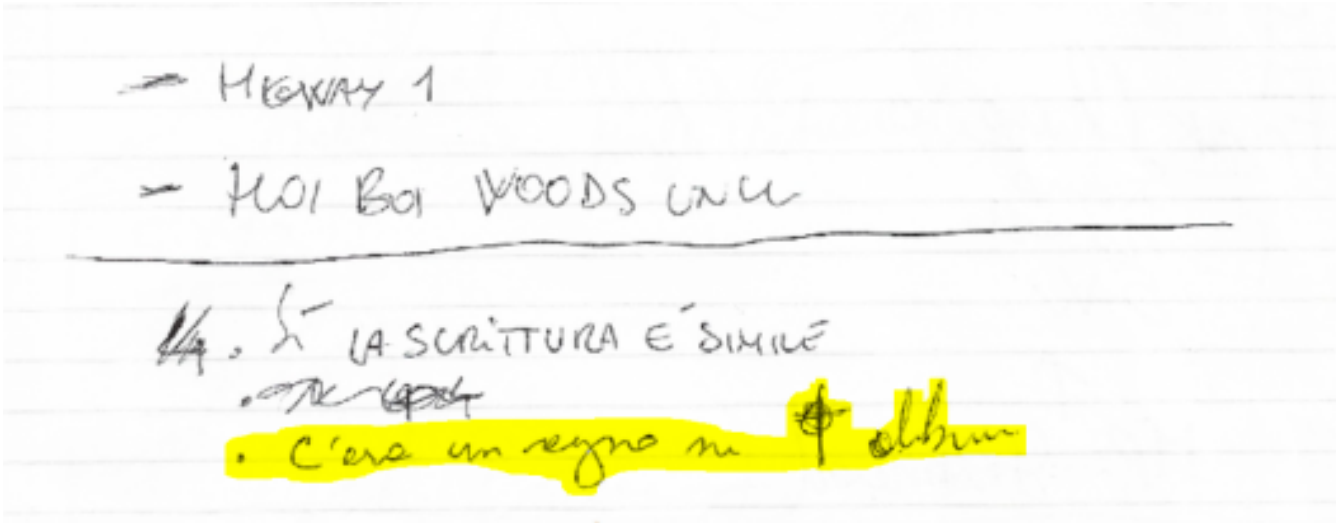 - HIGWAY 1
- HOI BOI WOODS
. Sì LA SCRITTURA E' SIMILE
. C'era un segno su album